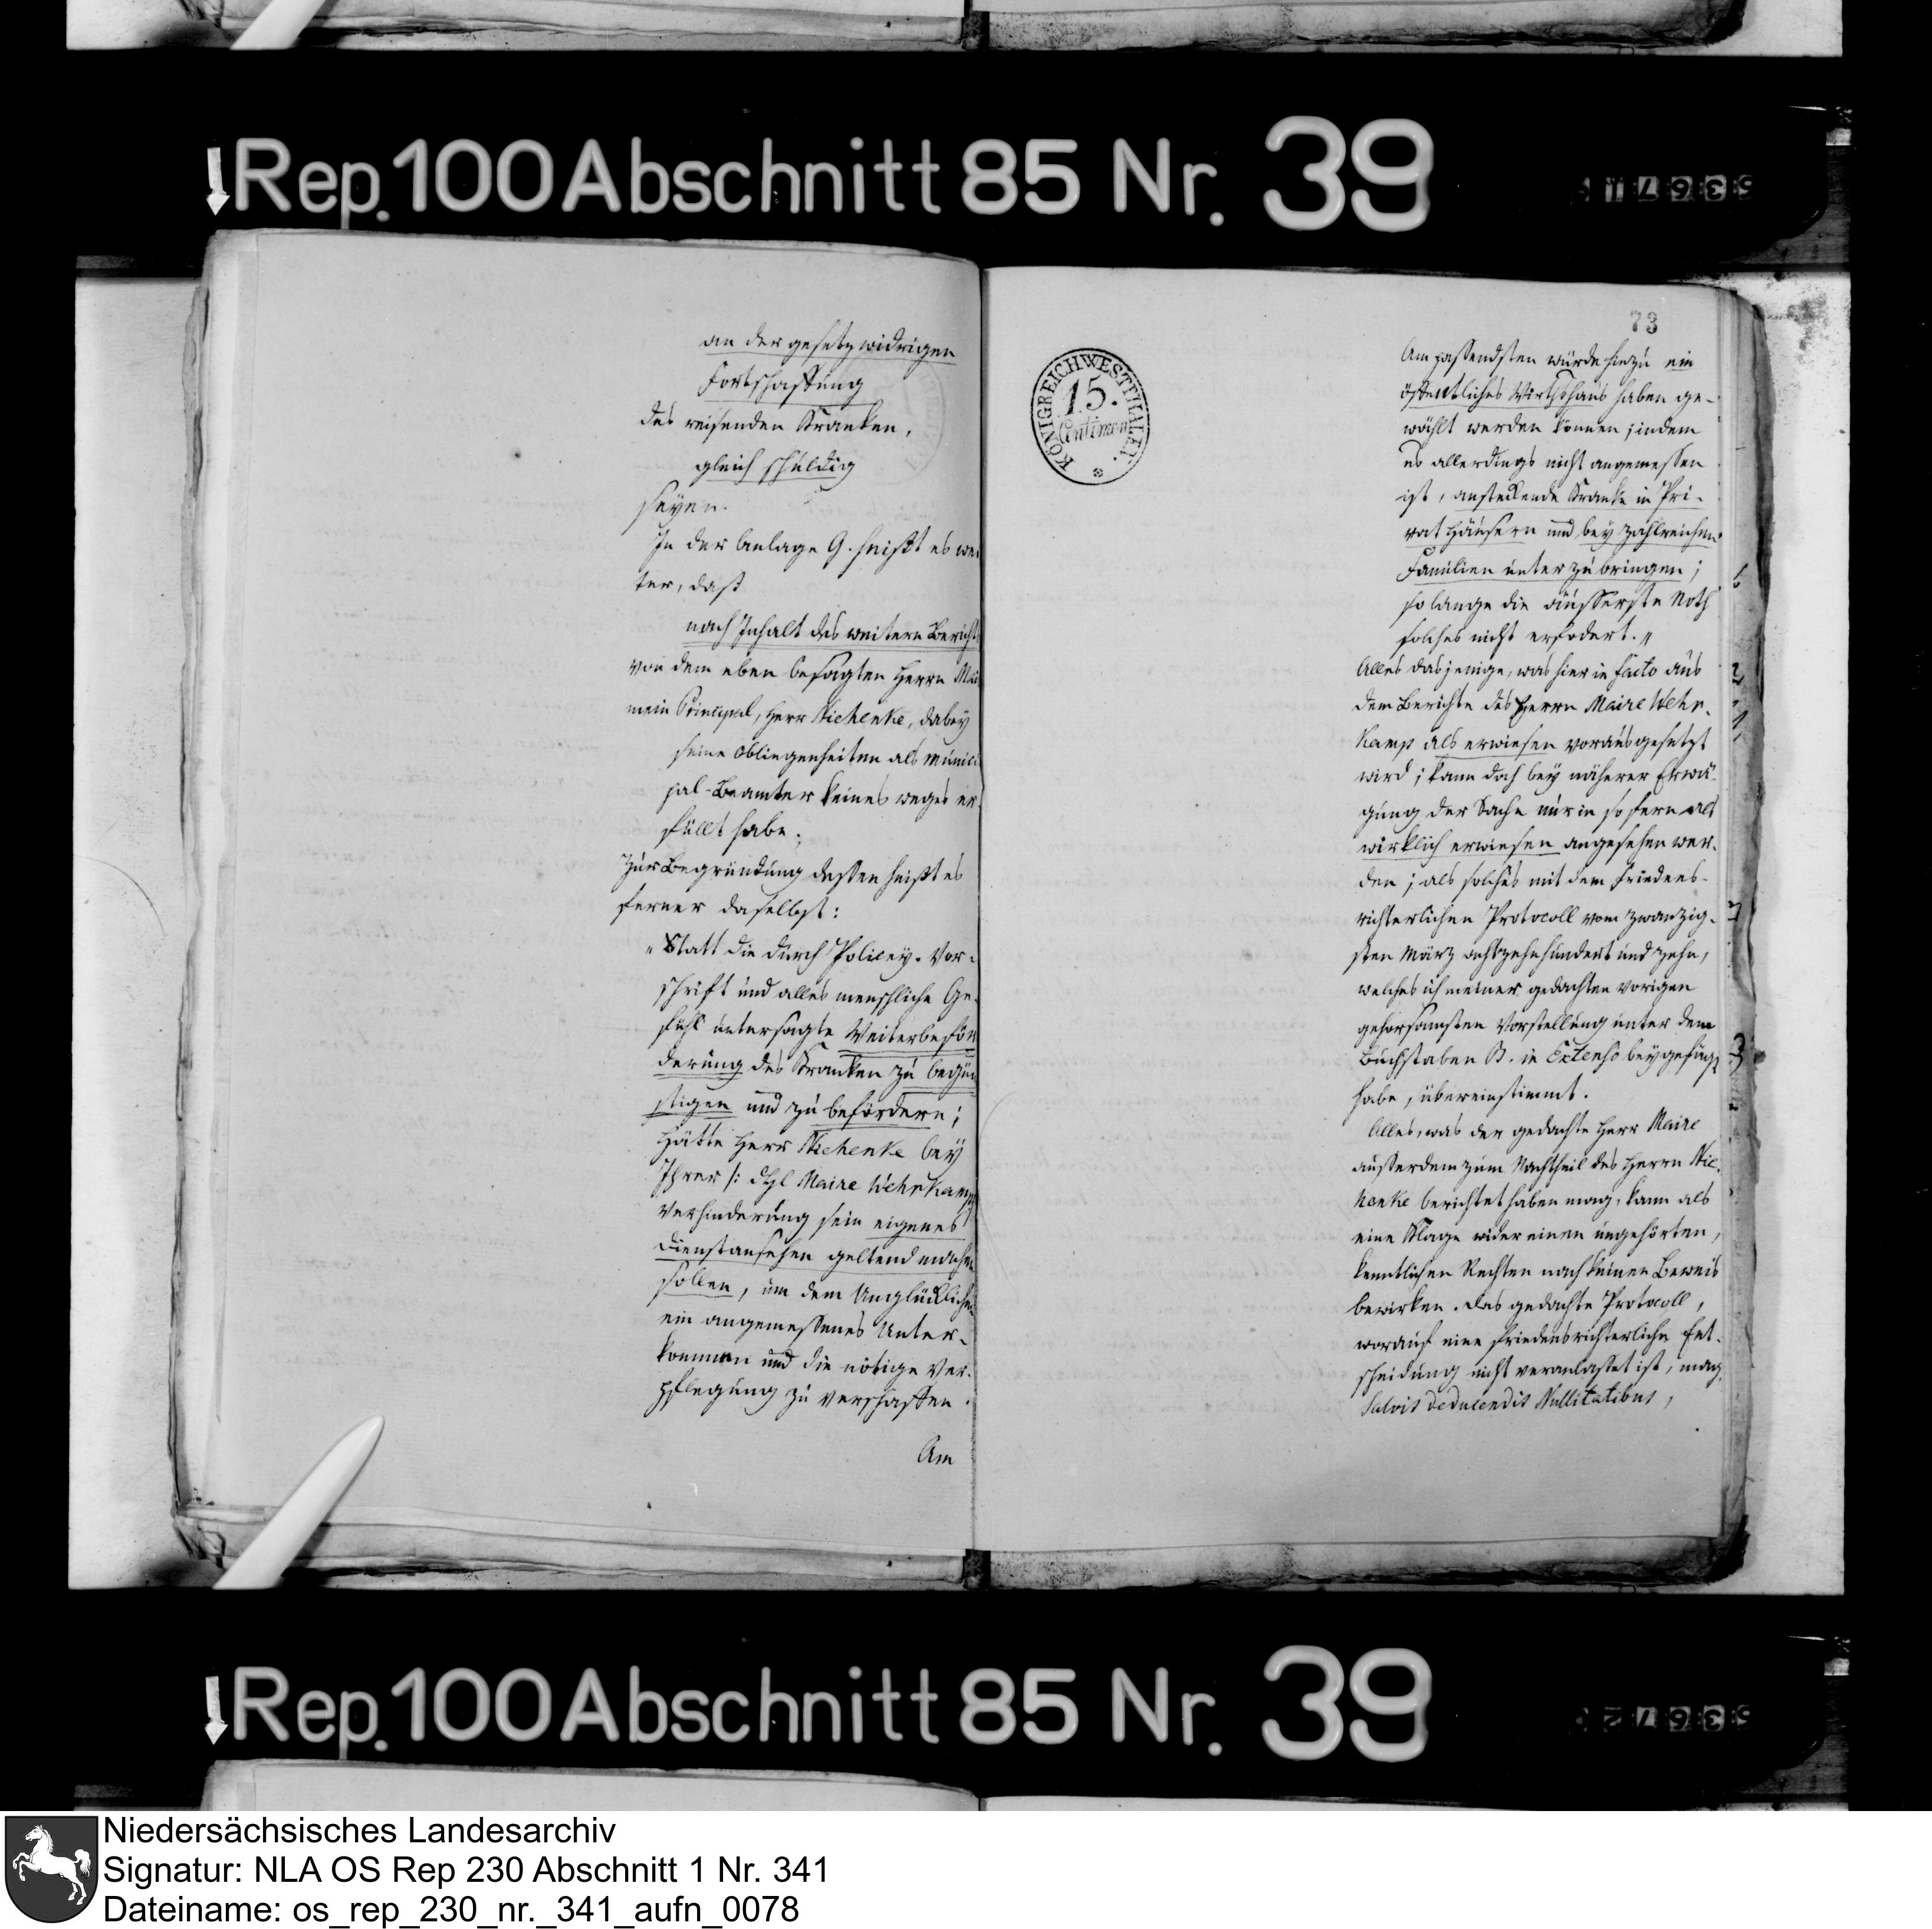 Rep. 100 Abschnitt 85 Nr. 39
an der gesetzwidrigen
Fortschaffung
des reisenden Kranken,
gleich schuldig
seyen.
In der Anlage G. heißt es wei
ter, daß
nach Inhalt des weitern Berichts
von dem eben besagten Herrn Mai
mein Principal, Herr Niehenke, dabey
seine Obliegenheiten als Munici
pal-Beamter keines weges er-
füllt habe.
Zur Begründung dessen heißt es
ferner daselbst:
„Statt die durch Policey-Vor-
schrift und alles menschliche Ge-
fühl untersagte Weiterbeför
derung des Kranken zu begün
stigen und zu befördern;
hätte Herr Niehenke bey
Ihrer /: Maire Wehrkamp
Verhinderung sein eigenes
Dienstansehen geltend machen
sollen, um dem Unglücklichen
ein angemessenes Unter-
kommen und die nötige Ver-
pflegung zu verschaffen.
Am
73
KÖNIGREICH WESTPHALEN.
15.
Centimen
Am passendsten würde hiezu ein
öffentliches Wirthshaus haben ge-
wählt werden können; indem
es allerdings nicht angemessen
ist, ansteckende Kranke in Pri-
vat Häusern und bey zahlreichen
Familien unter zu bringen;
solange die äusserste Noth
solches nicht erfodert."
Alles dasjenige, was hier in facto aus
dem Berichte des Herrn Maire Wehr-
kamp als erwiesen vorausgesetzt
wird; kann doch bey näherer Erwä-
gung der Sache nur in so fern als
wirklich erwiesen angesehen wer-
den; als solches mit dem Friedens-
richterlichen Protocoll vom zwanzig-
sten März achtzehnhundert und zehn,
welches ich meiner gedachten vorigen
gehorsamsten Vorstellung unter dem
Buchstaben B. in Extenso beygefügt
habe, übereinstimmt.
Alles, was der gedachte Herr Maire
ausserdem zum Nachtheil des Herrn Nie-
henke berichtet haben mag, kann als
eine Klage wider einen ungehörten,
kenntlichen Rechten nach keinen Beweis
bewirken. Das gedachte Protocoll,
worauf eine friedensrichterliche Ent-
scheidung nicht veranlasset ist, mag,
Salvis deducendis Nullitatibus,
Rep. 100 Abschnitt 85 Nr. 39
Niedersächsisches Landesarchiv
Signatur: NLA OS Rep 230 Abschnitt 1 Nr. 341
Dateiname: os_rep_230_nr._341_aufn_0078